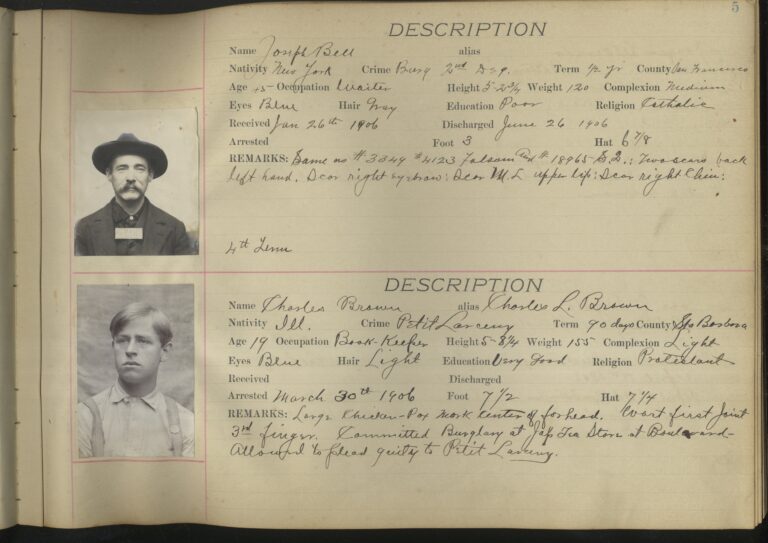 5
DESCRIPTION
Name Joseph Bell alias
Nativity New York Crime Burg 2nd Deg. Term County San Francisco
Age 45 Occupation Waiter Height 5-2 3/4 Weight 120 Complexion Medium
Eyes Blue Hair Gray Education Poor Religion Catholic
Received Jan 26th 1906 Discharged June 26 1906
Arrested Foot 3 Hat 6 7/8
REMARKS: Same as # 3349 # 4123 Folsom # 18965 S.2.: Two scars back
left hand. Scar right eyebrow: Scar M.L. upper lip: Scar right Chin:
4th Term
DESCRIPTION
Name Charles Brown alias Charles L. Brown
Nativity Ill. Crime Petit Larceny Term 90 days County Sta Barbara
Age 19 Occupation Book-Keeper Height 5-8 3/4 Weight 155 Complexion Light
Eyes Blue Hair Light Education Very Good Religion Protestant
Received Discharged
Arrested March 30th 1906 Foot 7 1/2 Hat 7 1/4
REMARKS: Large Chicken-Pox mark center of forhead. Wart first Joint
3rd finger. Committed Burglary at Jap Tea Store at Boulevard-
Allowed to plead guilty to Petit Larceny.